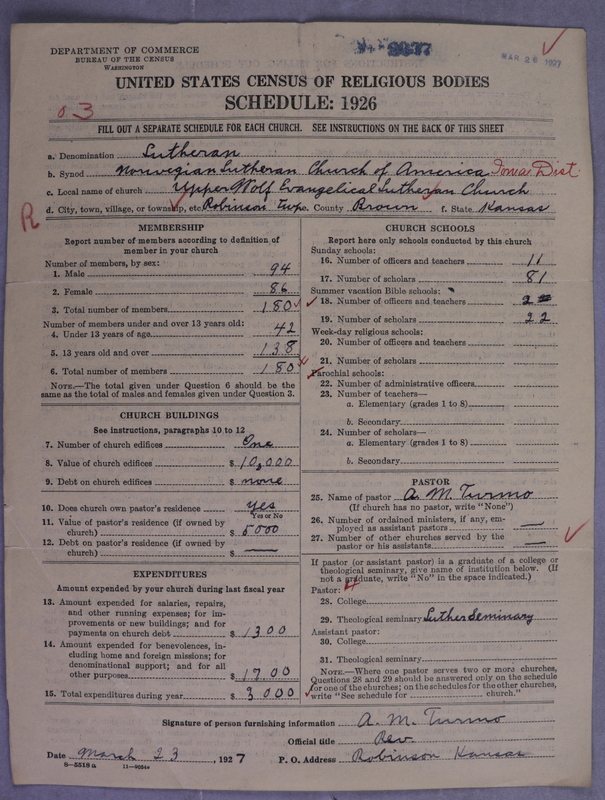 DEPARTMENT OF COMMERCE
BUREAU OF THE CENSUS
WASHINGTON
MAR 26 1927
UNITED STATES CENSUS OF RELIGIOUS BODIES
SCHEDULE: 1926
FILL OUT A SEPARATE SCHEDULE FOR EACH CHURCH. SEE INSTRUCTIONS ON THE BACK OF THIS SHEET
a. Denomination Lutheran
b. Synod Norwegian Lutheran Church of America Iowa Dist.
c. Local name of church Upper Wolf Evangelical Lutheran Church
d. City, town, village, or township, etc. Robinson Twp. e. County Brown f. State Kansas
R
MEMBERSHIP
Report number of members according to definition of
member in your church
Number of members, by sex:
1. Male 94
2. Female 86
3. Total number of members 180
Number of members under and over 13 years old:
4. Under 13 years of age 42
5. 13 years old and over 138
6. Total number of members 180
NOTE.—The total given under Question 6 should be the
same as the total of males and females given under Question 3.
CHURCH BUILDINGS
See instructions, paragraphs 10 to 12
7. Number of church edifices One
8. Value of church edifices $ 10,000
9. Debt on church edifices $ none
10. Does church own pastor's residence yes
Yes or No
11. Value of pastor's residence (if owned by
church) $ 5000
12. Debt on pastor's residence (if owned by
church) $ —
EXPENDITURES
Amount expended by your church during last fiscal year
13. Amount expended for salaries, repairs,
and other running expenses; for im-
provements or new buildings; and for
payments on church debt $ 1300
14. Amount expended for benevolences, in-
cluding home and foreign missions; for
denominational support; and for all
other purposes $ 1700
15. Total expenditures during year $ 3000
CHURCH SCHOOLS
Report here only schools conducted by this church
Sunday schools:
16. Number of officers and teachers 11
17. Number of scholars 81
Summer vacation Bible schools:
18. Number of officers and teachers 2
19. Number of scholars 22
Week-day religious schools:
20. Number of officers and teachers
21. Number of scholars
Parochial schools:
22. Number of administrative officers
23. Number of teachers—
a. Elementary (grades 1 to 8)
b. Secondary
24. Number of scholars—
a. Elementary (grades 1 to 8)
b. Secondary
PASTOR
25. Name of pastor A. M. Turmo
(If church has no pastor, write "None")
26. Number of ordained ministers, if any, em-
ployed as assistant pastors —
27. Number of other churches served by the
pastor or his assistants —
If pastor (or assistant pastor) is a graduate of a college or
theological seminary, give name of institution below. (If
not a graduate, write "No" in the space indicated.)
Pastor:
28. College
29. Theological seminary Luther Seminary
Assistant pastor:
30. College
31. Theological seminary
NOTE.—Where one pastor serves two or more churches,
Questions 28 and 29 should be answered only on the schedule
for one of the churches; on the schedules for the other churches,
write "See schedule for church."
Signature of person furnishing information A. M. Turmo
Official title Rev.
Date March 23, 1927 P. O. Address Robinson Kansas
8—5518a 11—9654